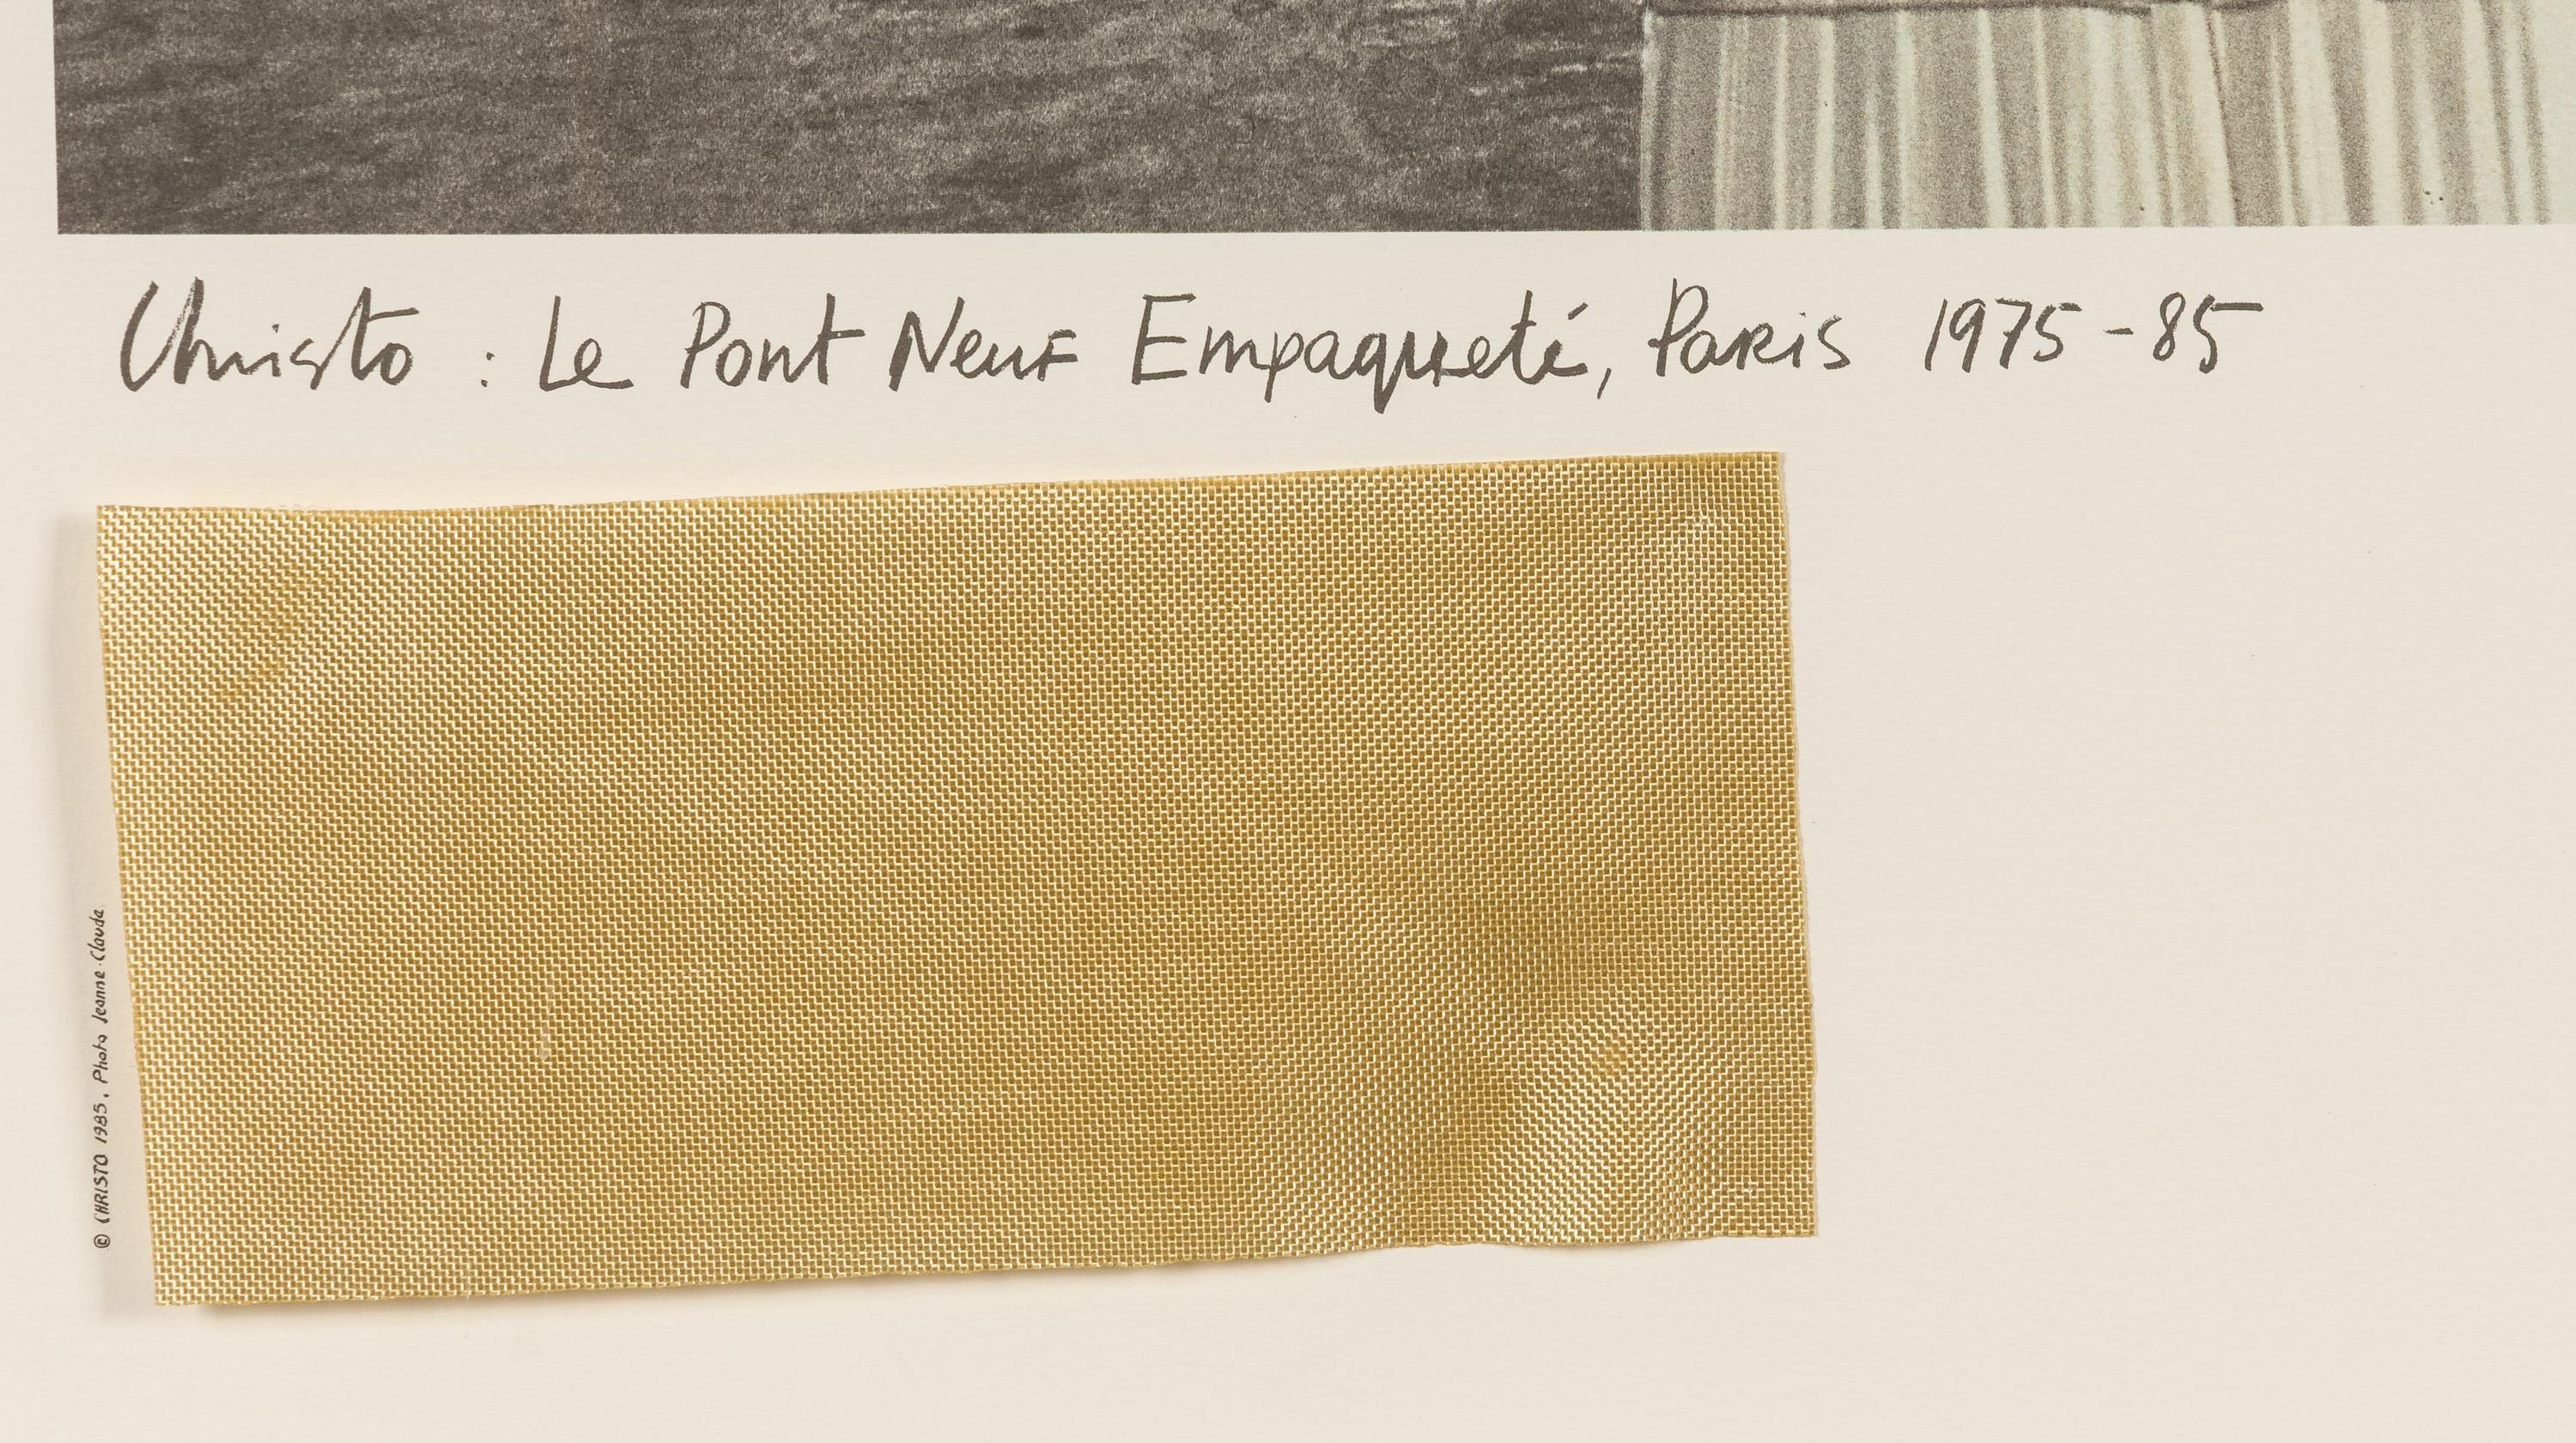 Christo : Le Pont Neuf Empaqueté, Paris 1975-85
© CHRISTO 1985, Photo Jeanne-Claude